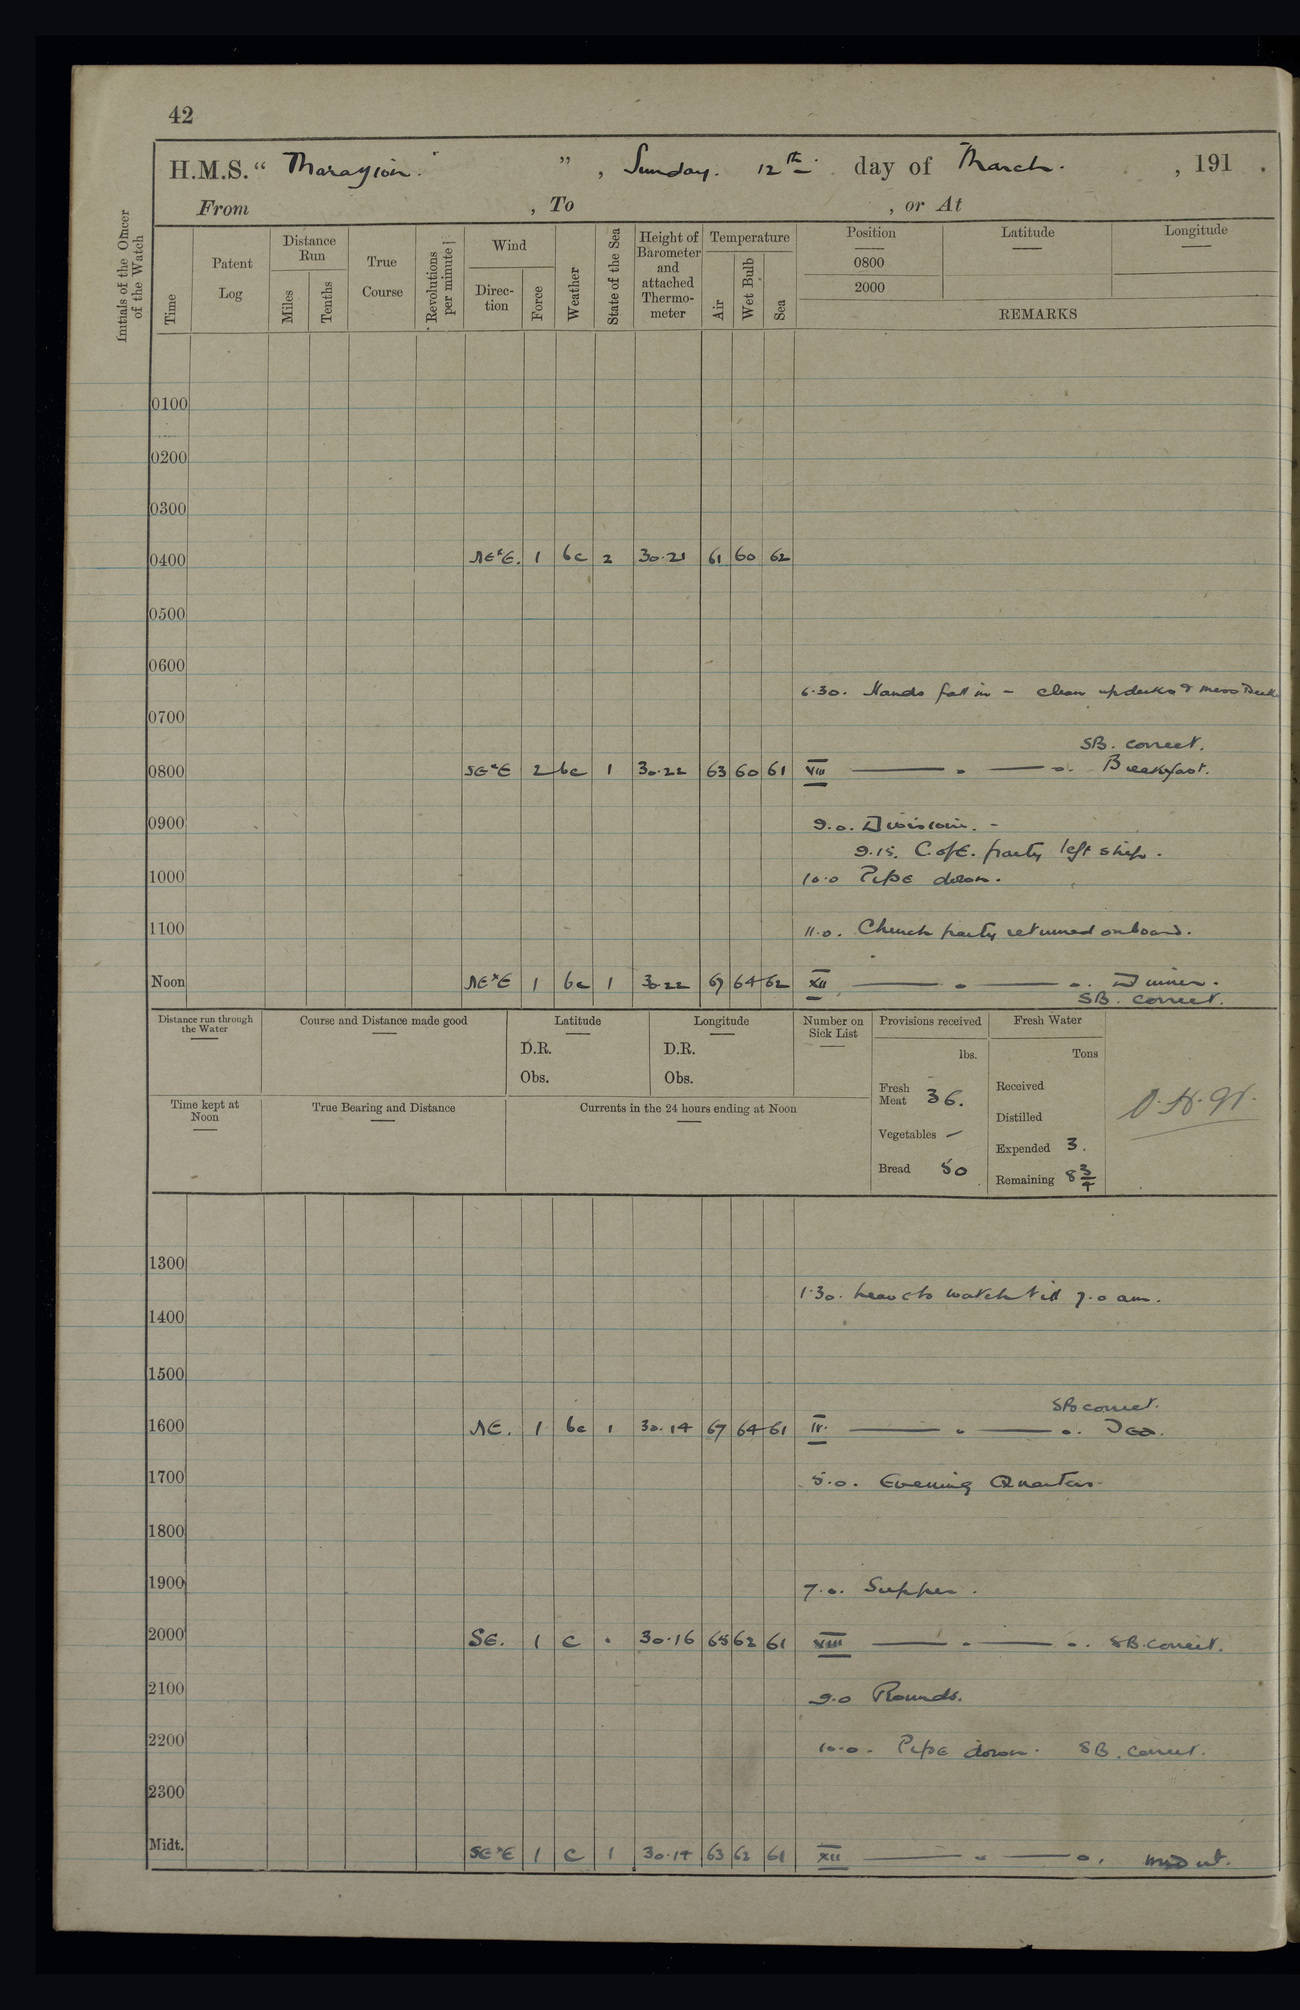 42
H.M.S. “ Marazion. ” , Sunday. 12th day of March. , 191 .
From , To , or At
Initials of the Officer of the Watch
Time
Patent Log
Distance Run
Miles
Tenths
True Course
Revolutions per minute
Wind
Direc- tion
Force
Weather
State of the Sea
Height of Barometer and attached Thermo- meter
Temperature
Air
Wet Bulb
Sea
Position
0800
2000
Latitude
Longitude
REMARKS
0100
0200
0300
0400 NE x E. 1 bc 2 30.21 61 60 62
0500
0600
6.30. Hands fall in - clean up decks & mess Deck
0700
SB. correct.
0800 SE x E 2 bc 1 30.22 63 60 61 VIII Breakfast.
0900 9.0. Division. -
9.15. C. of E. party left ship.
1000 10.0 Pipe down.
1100 11.0. Church party returned onboard.
Noon NE x E 1 bc 1 30.22 67 64 62 XII Dinner.
SB. correct.
Distance run through the Water
Course and Distance made good
Latitude
D.R.
Obs.
Longitude
D.R.
Obs.
Number on Sick List
Provisions received
lbs.
Fresh Meat 36.
Vegetables —
Bread 50
Fresh Water
Tons
Received
Distilled
Expended 3.
Remaining 8 3/4
Time kept at Noon
True Bearing and Distance
Currents in the 24 hours ending at Noon
1300
1.30. Leave to watch till 7.0 am.
1400
1500
SB correct.
1600 NE. 1 bc 1 30.14 67 64 61 IV. Tea.
1700 5.0. Evening Quarters.
1800
1900 7.0. Supper.
2000 SE. 1 c 30.16 65 62 61 VIII SB. correct.
2100 9.0 Rounds.
2200 10.0. Pipe down. SB. correct.
2300
Midt. SE x E 1 c 1 30.14 63 62 61 XII